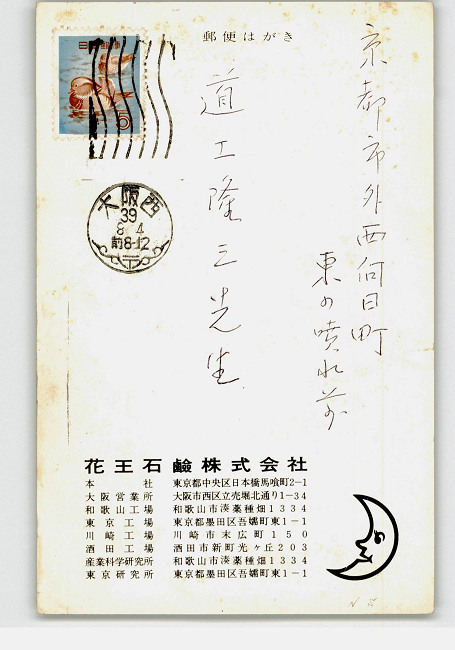 郵便はがき
京都市外西向日町
東の噴水前
道工隆三先生
日本郵便
5
大阪西
39
8 4
前8-12
花王石鹸株式会社
本社 東京都中央区日本橋馬喰町2-1
大阪営業所 大阪市西区立売堀北通り1-34
和歌山工場 和歌山市湊薬種畑1334
東京工場 東京都墨田区吾嬬町東1-1
川崎工場 川崎市末広町150
酒田工場 酒田市新町光ヶ丘203
産業科学研究所 和歌山市湊薬種畑1334
東京研究所 東京都墨田区吾嬬町東1-1